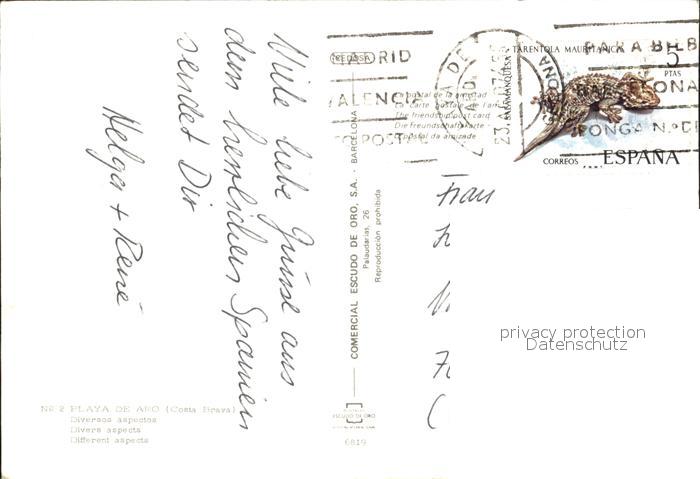 Viele liebe Grüsse aus
dem herrlichen Spanien
sendet Dir
Helga + René
Nº 2 PLAYA DE ARO (Costa Brava)
Diversos aspectos
Divers aspects
Different aspects
COMERCIAL ESCUDO DE ORO, S.A. - BARCELONA
Palaudarias, 26
Reproducción prohibida
ESCUDO DE ORO
6819
La postal de la amistad
La carte postale de l'am
The friendship post card
Die Freundschaftskarte
A postal da amizade
TARENTOLA MAURITANICA
SALAMANQUESA
5
PTAS
CORREOS ESPAÑA
PARA
PONGA N.º D
Frau
privacy protection
Datenschutz